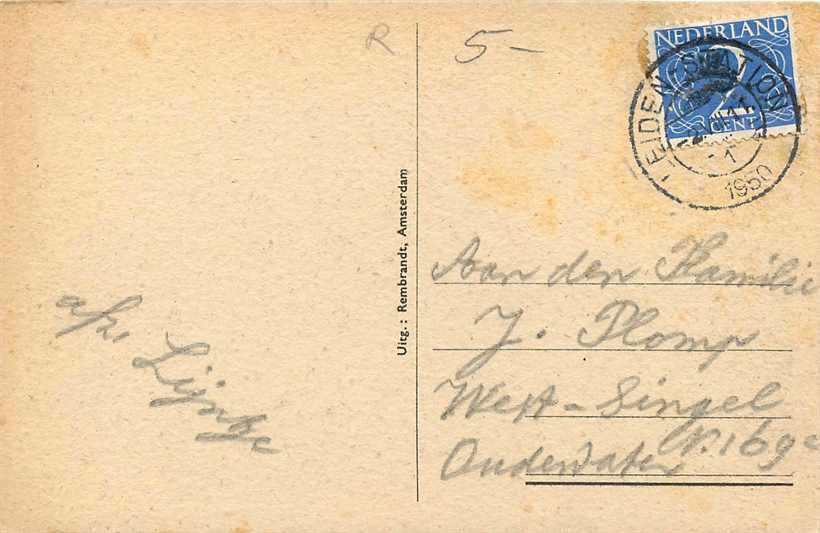 R 5-
NEDERLAND
2
CENT
LEIDEN-STATION
1950
Uitg.: Rembrandt, Amsterdam
Aan den Familie
J. Plomp
West-Singel
N. 169c
Oudewater
afz. Lijntje